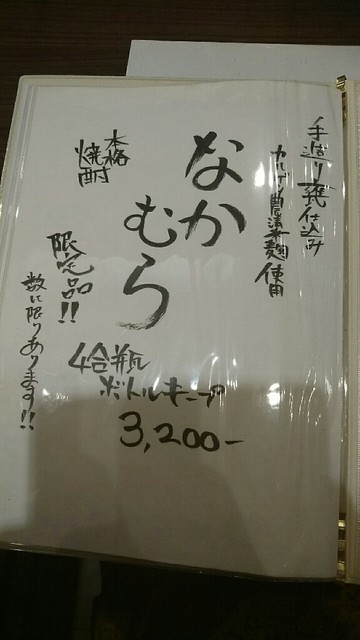 手造り甕仕込み
カルゲン農法米麹使用
なか
むら
本格
焼酎
限定品!!
数に限りあります!!
4合瓶
ボトルキープ
3,200-